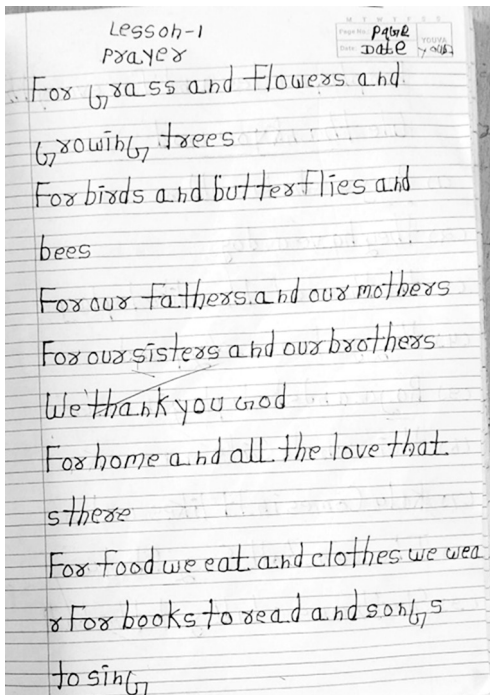 Lesson-1
Prayer
Page No. Page
Date Date
YOUVA
M T W T F S S
For Grass and flowers and
Growing trees
For birds and butterflies and
bees
For our fathers.and our mothers
For our sisters and our brothers
We thank you God
For home and all the love that
sthere
For food we eat and clothes we wea
r For books to read and songs
to sing